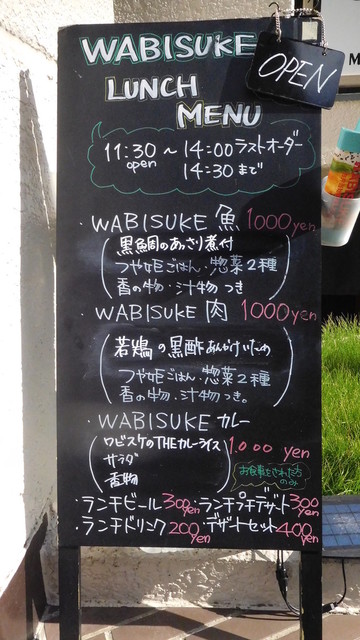 WABISUKE
OPEN
LUNCH
MENU
11:30 ~ 14:00 ラストオーダー
open
14:30 まで
・WABISUKE 魚 1000yen
黒魚周のあっさり煮付
つや姫ごはん・惣菜2種
香の物・汁物つき
・WABISUKE 肉 1000yen
若鶏の黒酢あんかけいため
つや姫ごはん・惣菜2種
香の物・汁物つき。
・WABISUKE カレー
ワビスケのTHEカレーライス 1.000 yen
サラダ
香物
お食事をされた方
のみ
・ランチビール 300yen ・ランチプチデザート 300yen
・ランチドリンク 200yen ・デザートセット 400yen